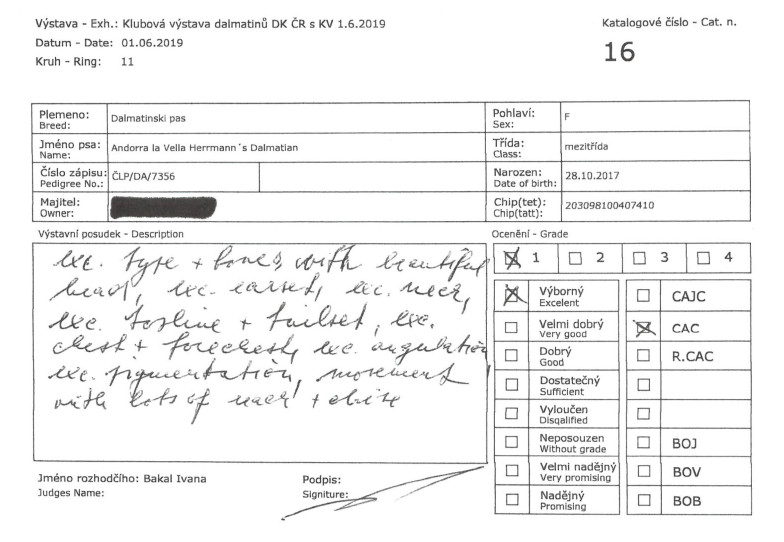 Výstava - Exh.: Klubová výstava dalmatinů DK ČR s KV 1.6.2019
Katalogové číslo - Cat. n.
Datum - Date: 01.06.2019
16
Kruh - Ring: 11
Plemeno: Dalmatinski pas
Breed:
Pohlaví: F
Sex:
Jméno psa: Andorra la Vella Herrmann´s Dalmatian
Name:
Třída: mezitřída
Class:
Číslo zápisu: ČLP/DA/7356
Pedigree No.:
Narozen: 28.10.2017
Date of birth:
Majitel:
Owner:
Chip(tet): 203098100407410
Chip(tatt):
Výstavní posudek - Description
exc. type + bones with beautiful
head, exc. earset, exc. neck,
exc. topline + tailset, exc.
chest + forechest, exc. angulation
exc. pigmentation, movement
with lots of reach + drive
Jméno rozhodčího: Bakal Ivana
Judges Name:
Podpis:
Signiture:
Ocenění - Grade
1 2 3 4
Výborný
Excelent
CAJC
Velmi dobrý
Very good
CAC
Dobrý
Good
R.CAC
Dostatečný
Sufficient
Vyloučen
Disqalified
Neposouzen
Without grade
BOJ
Velmi nadějný
Very promising
BOV
Nadějný
Promising
BOB